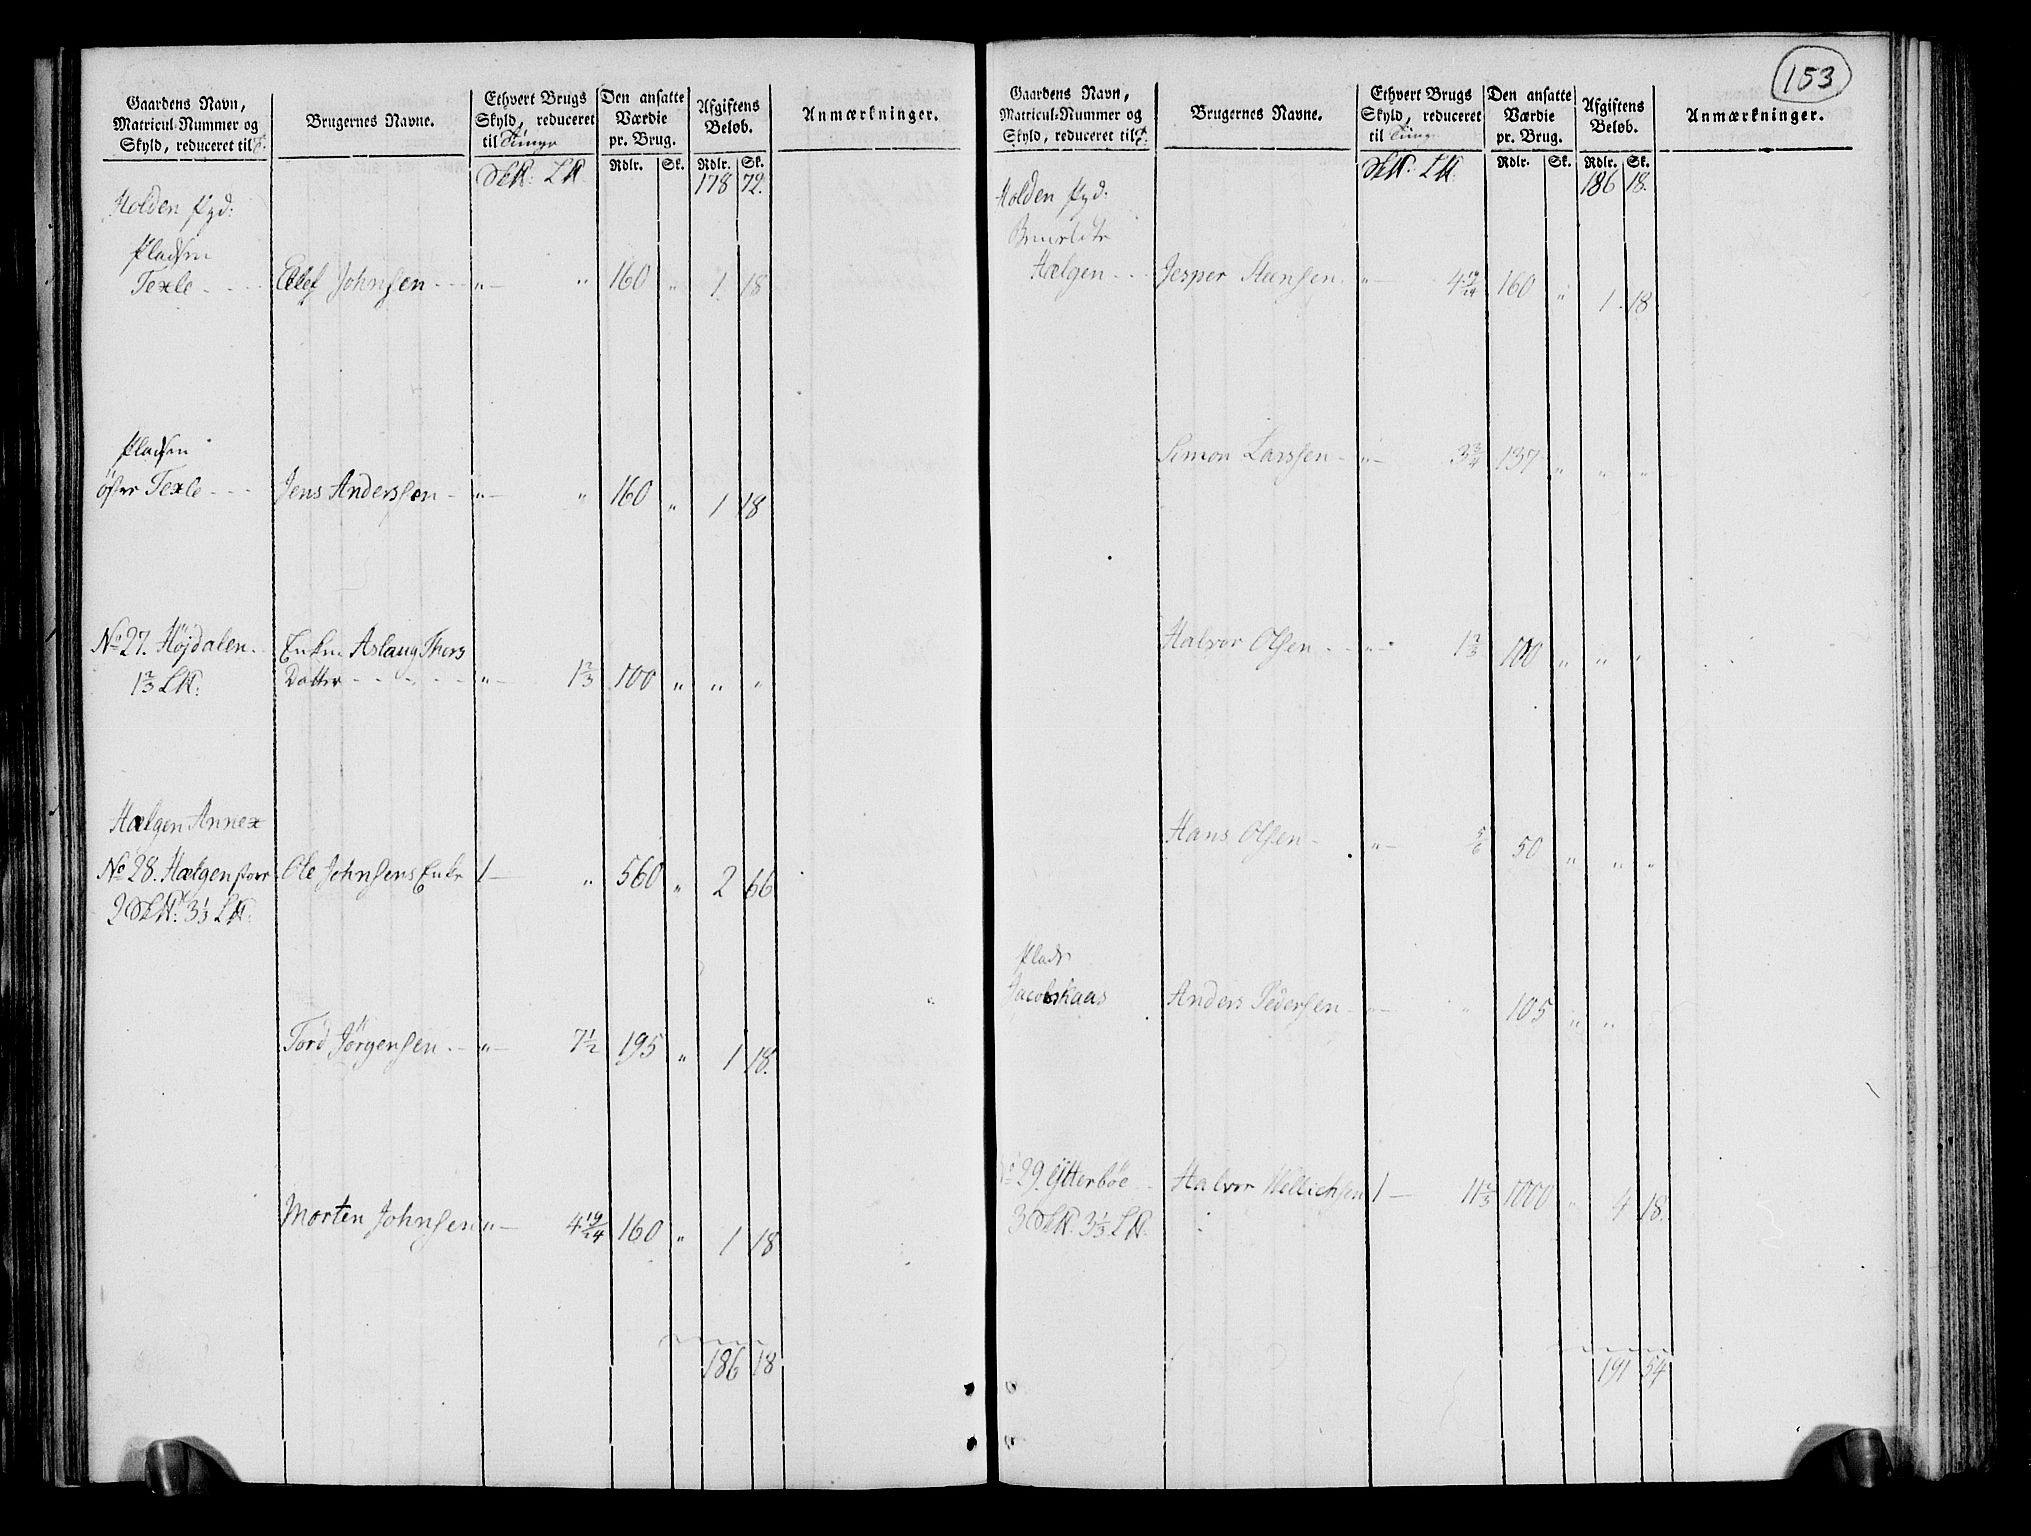 153
Gaardens Navn, Matricul-Nummer og Skyld, reduceret til
Brugernes Navne.
Ethvert Brugs Skyld, reduceret til Tunge
Den ansatte Værdie pr. Brug.
Afgiftens Beløb.
Anmærkninger.
Rdlr. Sk. Rdlr. Sk.
178 72.
Holden Pgd:
Pladsen
Texle - - - Ellef Johnsen - - - „ — „ 160 „ 1. 18
Pladsen
öster Texle - - - Jens Anderssen - „ — „ 160 „ 1 18
No 27. Højdalen - Enken Aslaug Thors
1 2/3 L℔. Datter - - - - - „ — 1 2/3 100 „ „ „
Hælgen Annex
No 28. Hælgen store Ole Johnsens Enke 1 — „ 560 „ 2 66.
2 Sk℔: 3 1/3 L℔.
Tord Jörgensen - „ — 7 1/2 195 „ 1 18.
Morten Johnsen „ — 4 19/24 160 „ 1 18
186 18
Gaardens Navn, Matricul-Nummer og Skyld, reduceret til
Brugernes Navne.
Ethvert Brugs Skyld, reduceret til Tunge
Den ansatte Værdie pr. Brug.
Afgiftens Beløb.
Anmærkninger.
Rdlr. Sk. Rdlr. Sk.
186 18.
Holden Pgd:
Hælgen - - Jesper Steensen - „ — 4 19/24 160 „ 1. 18.
Simon Larssen - „ — 3 3/4 137 „ „ „
Halvor Olsen - - „ — 1 2/3 100 „ „ „
Hans Olsen - „ — 5/6 50 „ „ „
Plads
Jacobskaas Anders Pedersen - „ — „ 105 „ „
No 29. Ytterböe - Halvor Kellichsen 1 — 11 2/3 1000 „ 4 18.
3 Sk℔. 3 1/3 L℔.
191 54